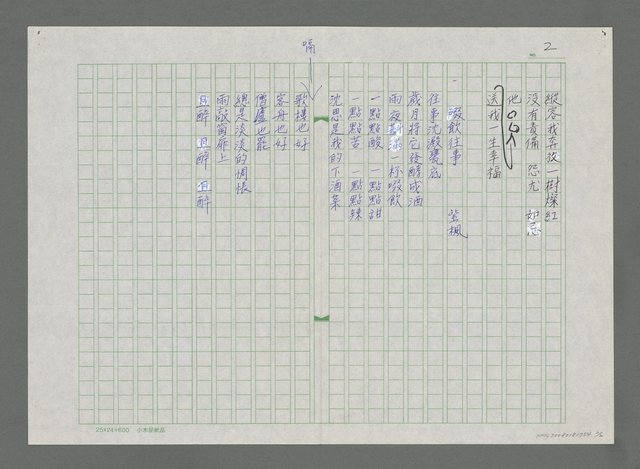 2
縱容我弄放一樹燦紅
沒有責備 怨尤 妒忌
他
送我一生幸福
啜飲往事 紫楓
往事沈澱甕底
歲月將它發酵成酒
雨夜斟滿一杯啜飲
一點點酸 一點點甜
一點點苦 一點點辣
沈思是我的下酒菜
隔
歌樓也好
客舟也好
僧廬也罷
總是淡淡的惆悵
雨敲窗扉上
且醉 且醉 且醉
25×24=600 小木屋紙品